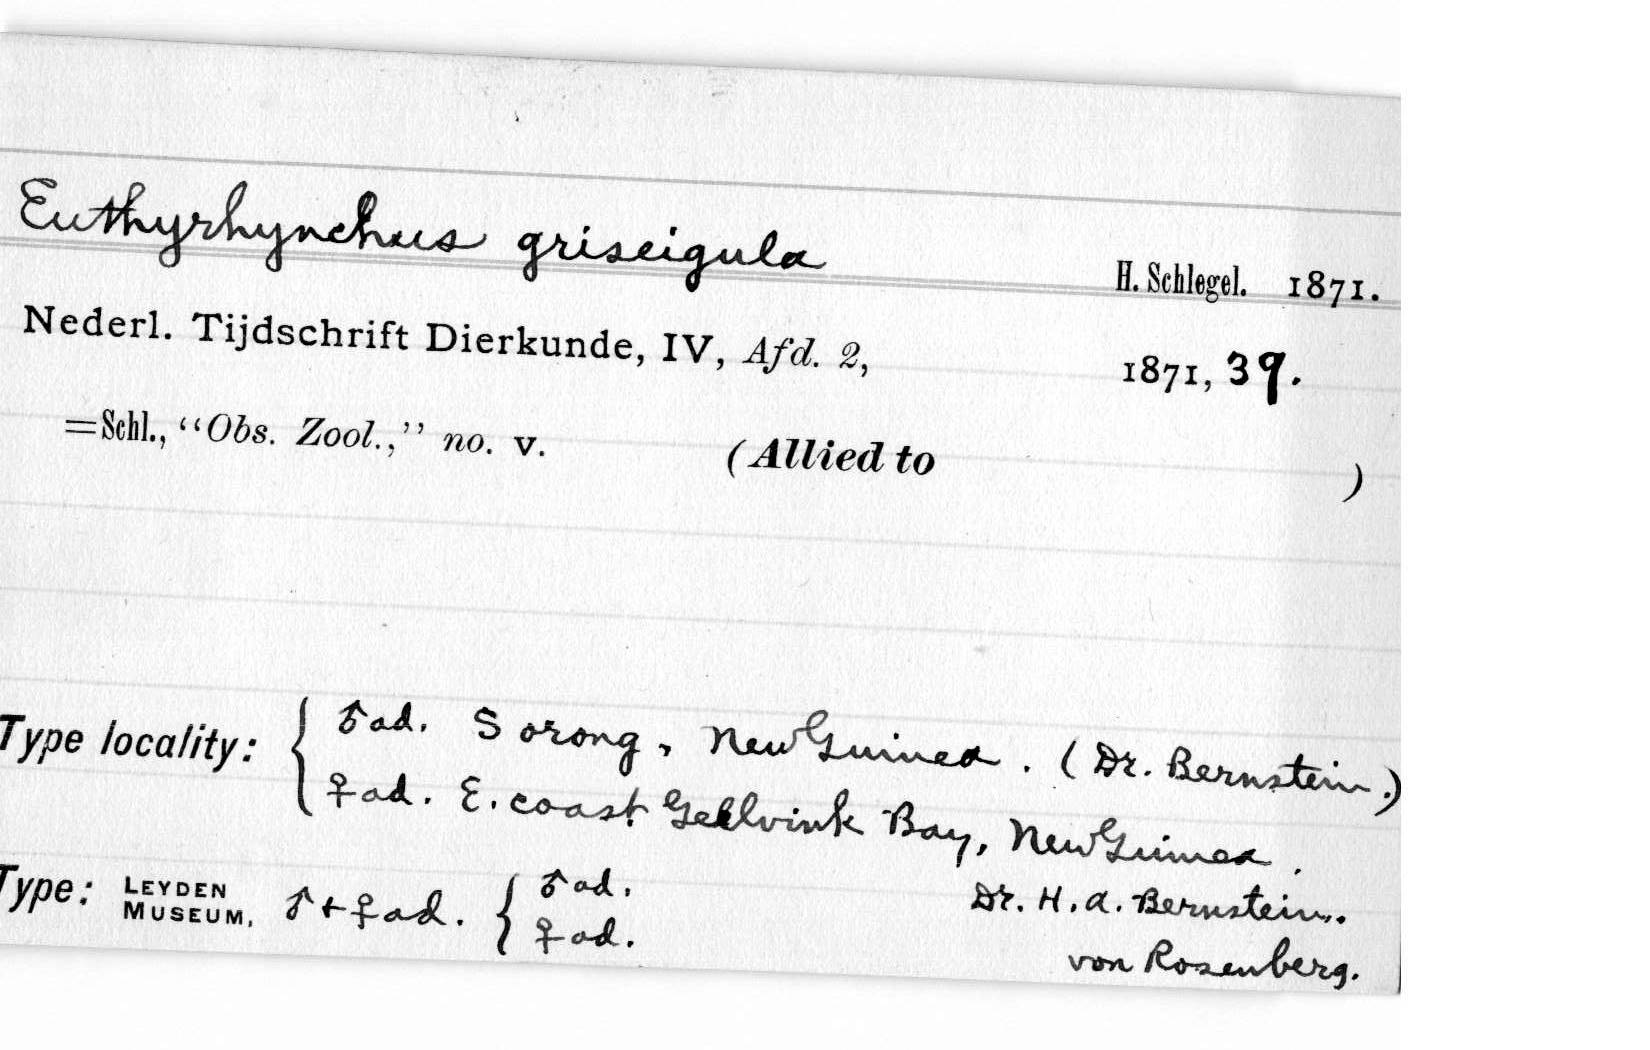 Euthyrhynchus griseigula H. Schlegel. 1871.
Nederl. Tijdschrift Dierkunde, IV, Afd. 2, 1871, 39.
=Schl., “Obs. Zool.,” no. v. (Allied to )
Type locality: { ♂ ad. Sorong, New Guinea. (Dr. Bernstein.)
♀ ad. E. coast Geelvink Bay, New Guinea.
Type: LEYDEN MUSEUM, ♂ + ♀ ad. { ♂ ad. Dr. H. A. Bernstein.
♀ ad. von Rosenberg.